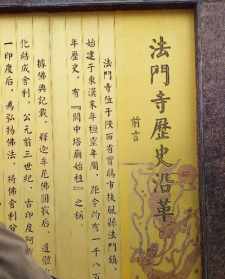 法門寺歷史沿革
前言
法門寺位于陝西省寶鷄市扶風縣法門鎮，
始建于東漢末年桓靈年間，距今約有一千八百
年歷史，有『關中塔廟始祖』之稱
據佛典記載，釋迦牟尼佛圓寂后，遺體
化結成舍利，公元前三世紀，古印度阿
一印度后，爲弘揚佛法，將佛舍利分